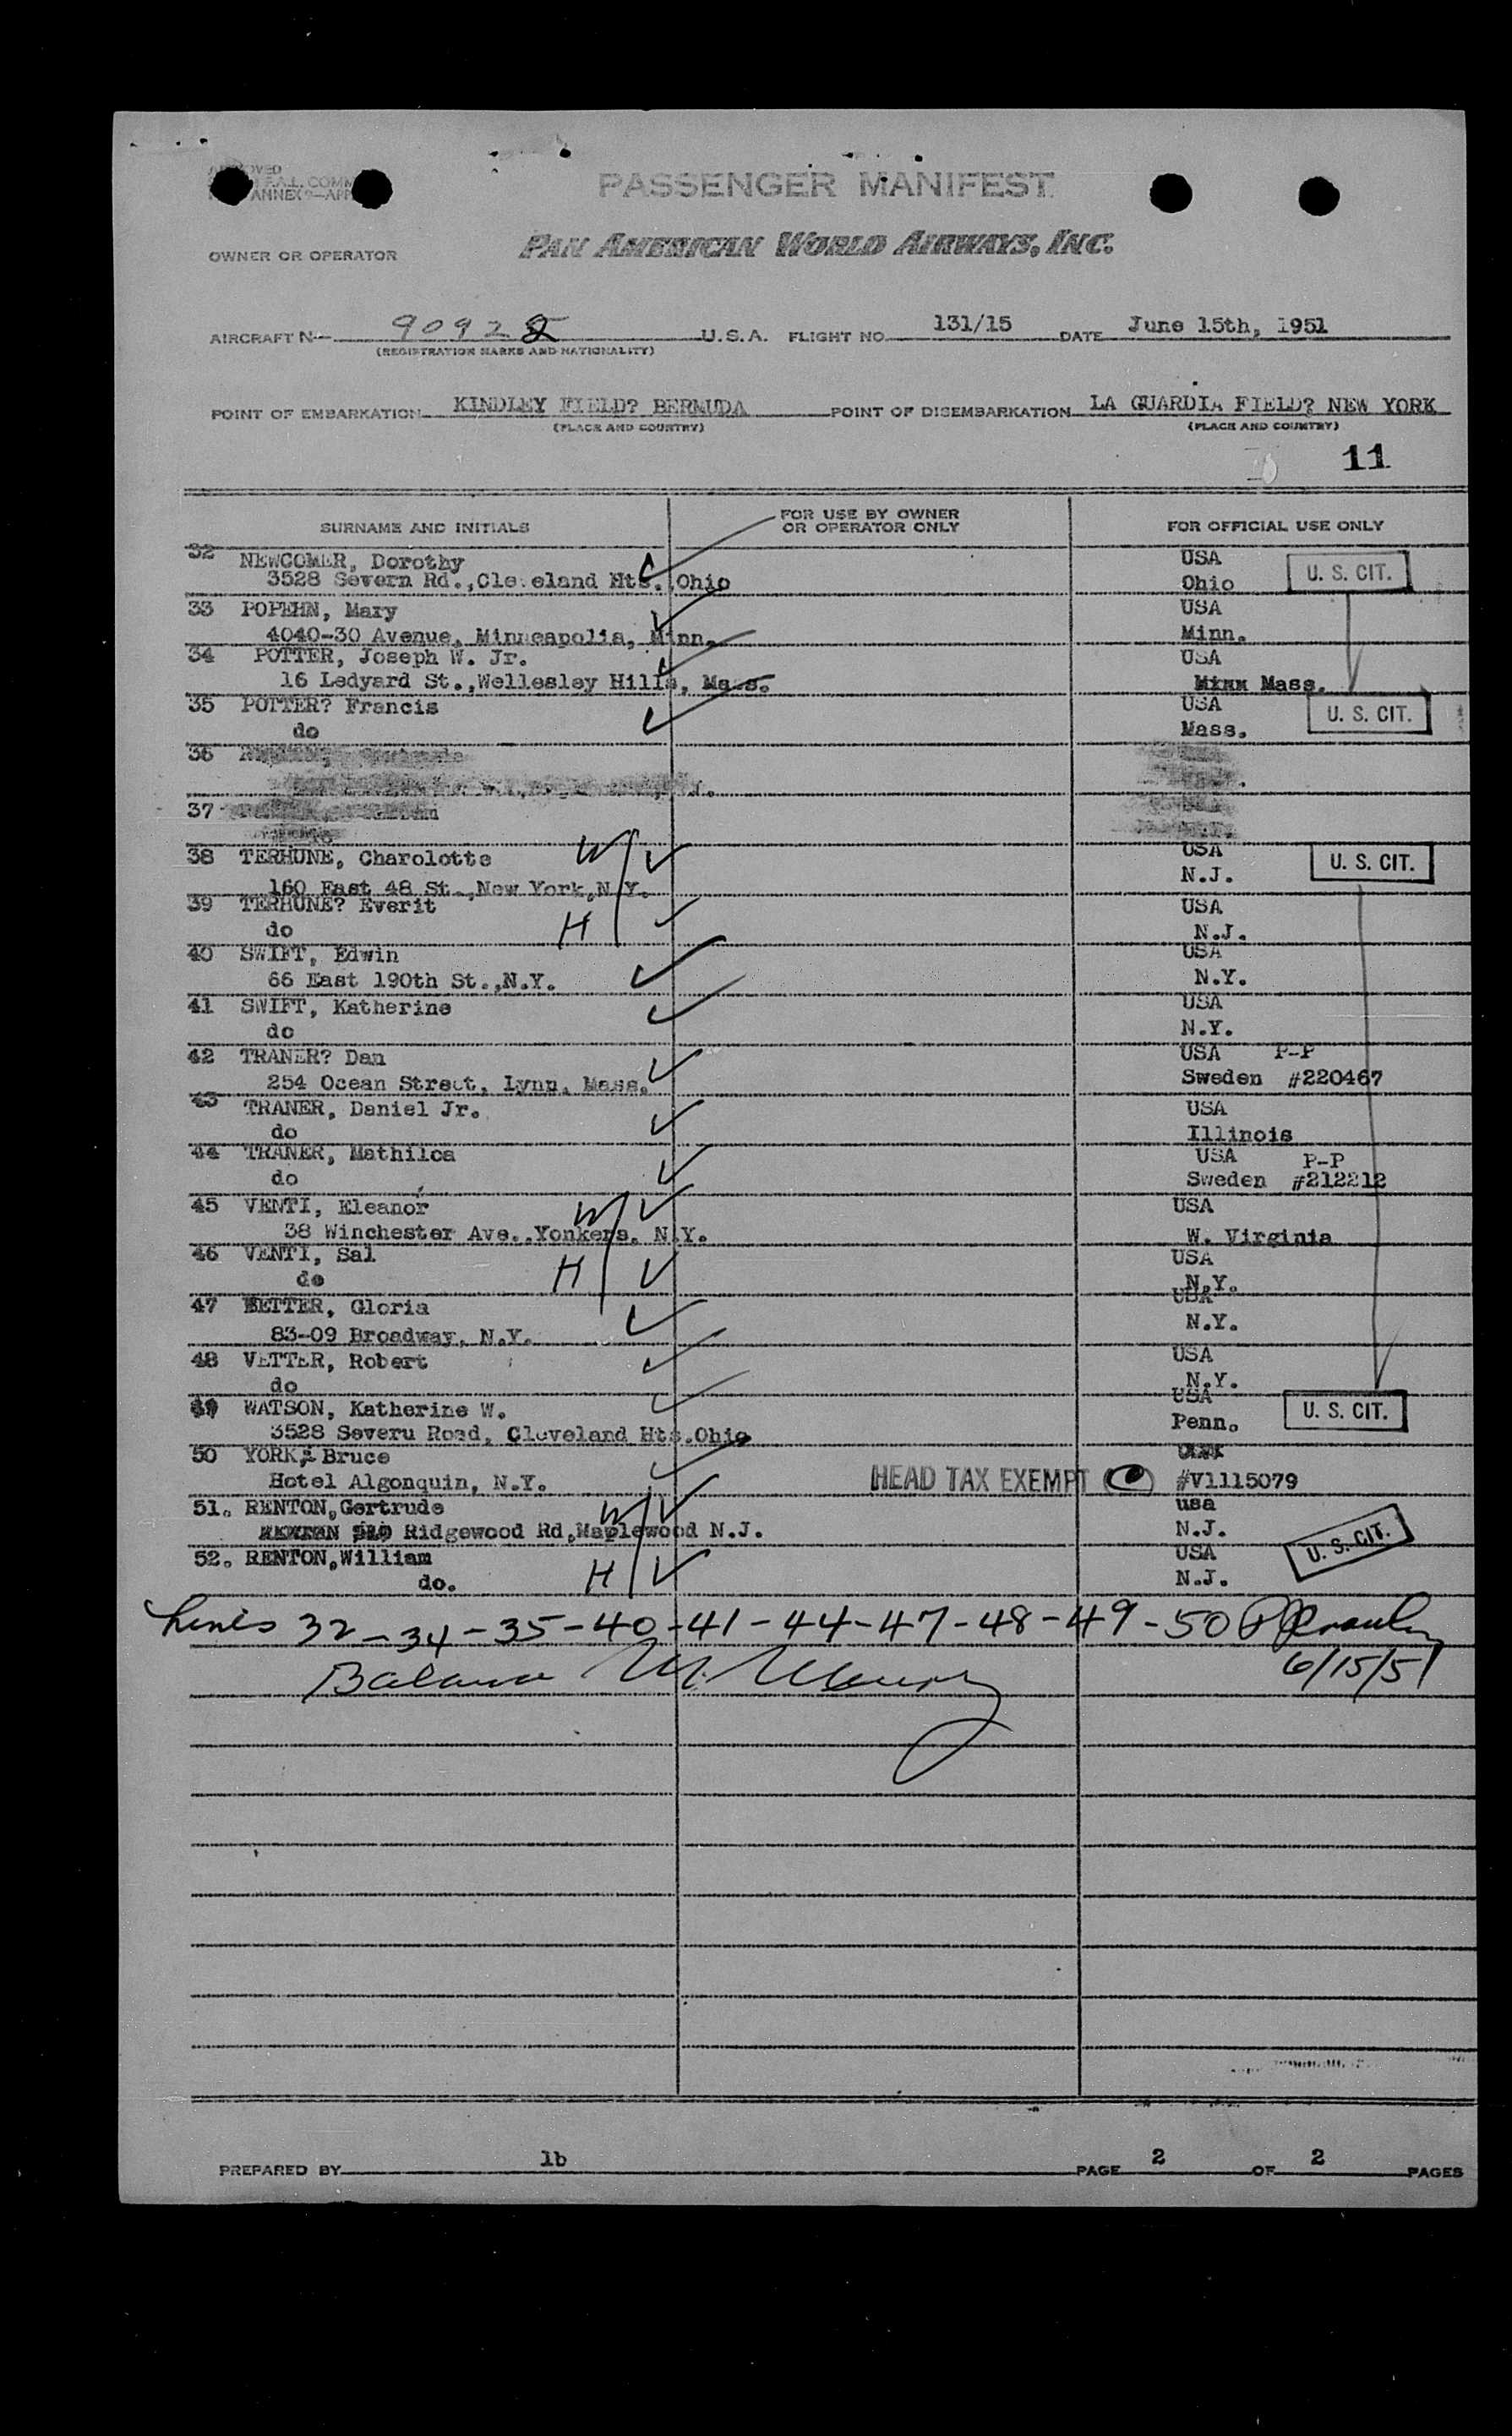 PASSENGER MANIFEST
ANNEX
PAN AMERICAN WORLD AIRWAYS, INC.
OWNER OR OPERATOR
AIRCRAFT N U.S.A. FLIGHT NO. 131/15 DATE June 15th, 1951
(REGISTRATION MARKS AND NATIONALITY)
POINT OF EMBARKATION KINDLEY FIELD? BERMUDA POINT OF DISEMBARKATION LA GUARDIA FIELD? NEW YORK
(PLACE AND COUNTRY) (PLACE AND COUNTRY)
11
SURNAME AND INITIALS FOR USE BY OWNER OR OPERATOR ONLY FOR OFFICIAL USE ONLY
32 NEWCOMER, Dorothy USA
3528 Severn Rd.,Cleveland Hts. Ohio Ohio U. S. CIT.
33 POPEHN, Mary USA
4040-30 Avenue, Minneapolis, Minn. Minn.
34 POTTER, Joseph W. Jr. USA
16 Ledyard St.,Wellesley Hills, Mass. Mass.
35 POTTER? Francis USA
do Mass. U. S. CIT.
36
37
38 TERHUNE, Charolotte W USA
160 East 48 St.,New York,N.Y. N.J. U. S. CIT.
39 TERHUNE? Everit USA
do H N.J.
40 SWIFT, Edwin USA
66 East 190th St.,N.Y. N.Y.
41 SWIFT, Katherine USA
do N.Y.
42 TRANER? Dan USA P-P
254 Ocean Street, Lynn, Mass. Sweden #220467
43 TRANER, Daniel Jr. USA
do Illinois
44 TRANER, Mathilca USA P-P
do Sweden #212212
45 VENTI, Eleanor W USA
38 Winchester Ave..Yonkers, N.Y. W. Virginia
46 VENTI, Sal USA
do H N.Y.
47 VETTER, Gloria USA
83-09 Broadway, N.Y. N.Y.
48 VETTER, Robert USA
do N.Y.
49 WATSON, Katherine W. USA
3528 Severu Road, Cleveland Hts.Ohio Penn. U. S. CIT.
50 YORK, Bruce
Hotel Algonquin, N.Y. HEAD TAX EXEMPT #V1115079
51. RENTON,Gertrude W usa
Ridgewood Rd,Maplewood N.J. N.J.
52. RENTON,William USA U. S. CIT.
do. H N.J.
Lines 32-34-35-40-41-44-47-48-49-50
Balance 6/15/51
PREPARED BY lb PAGE 2 OF 2 PAGES